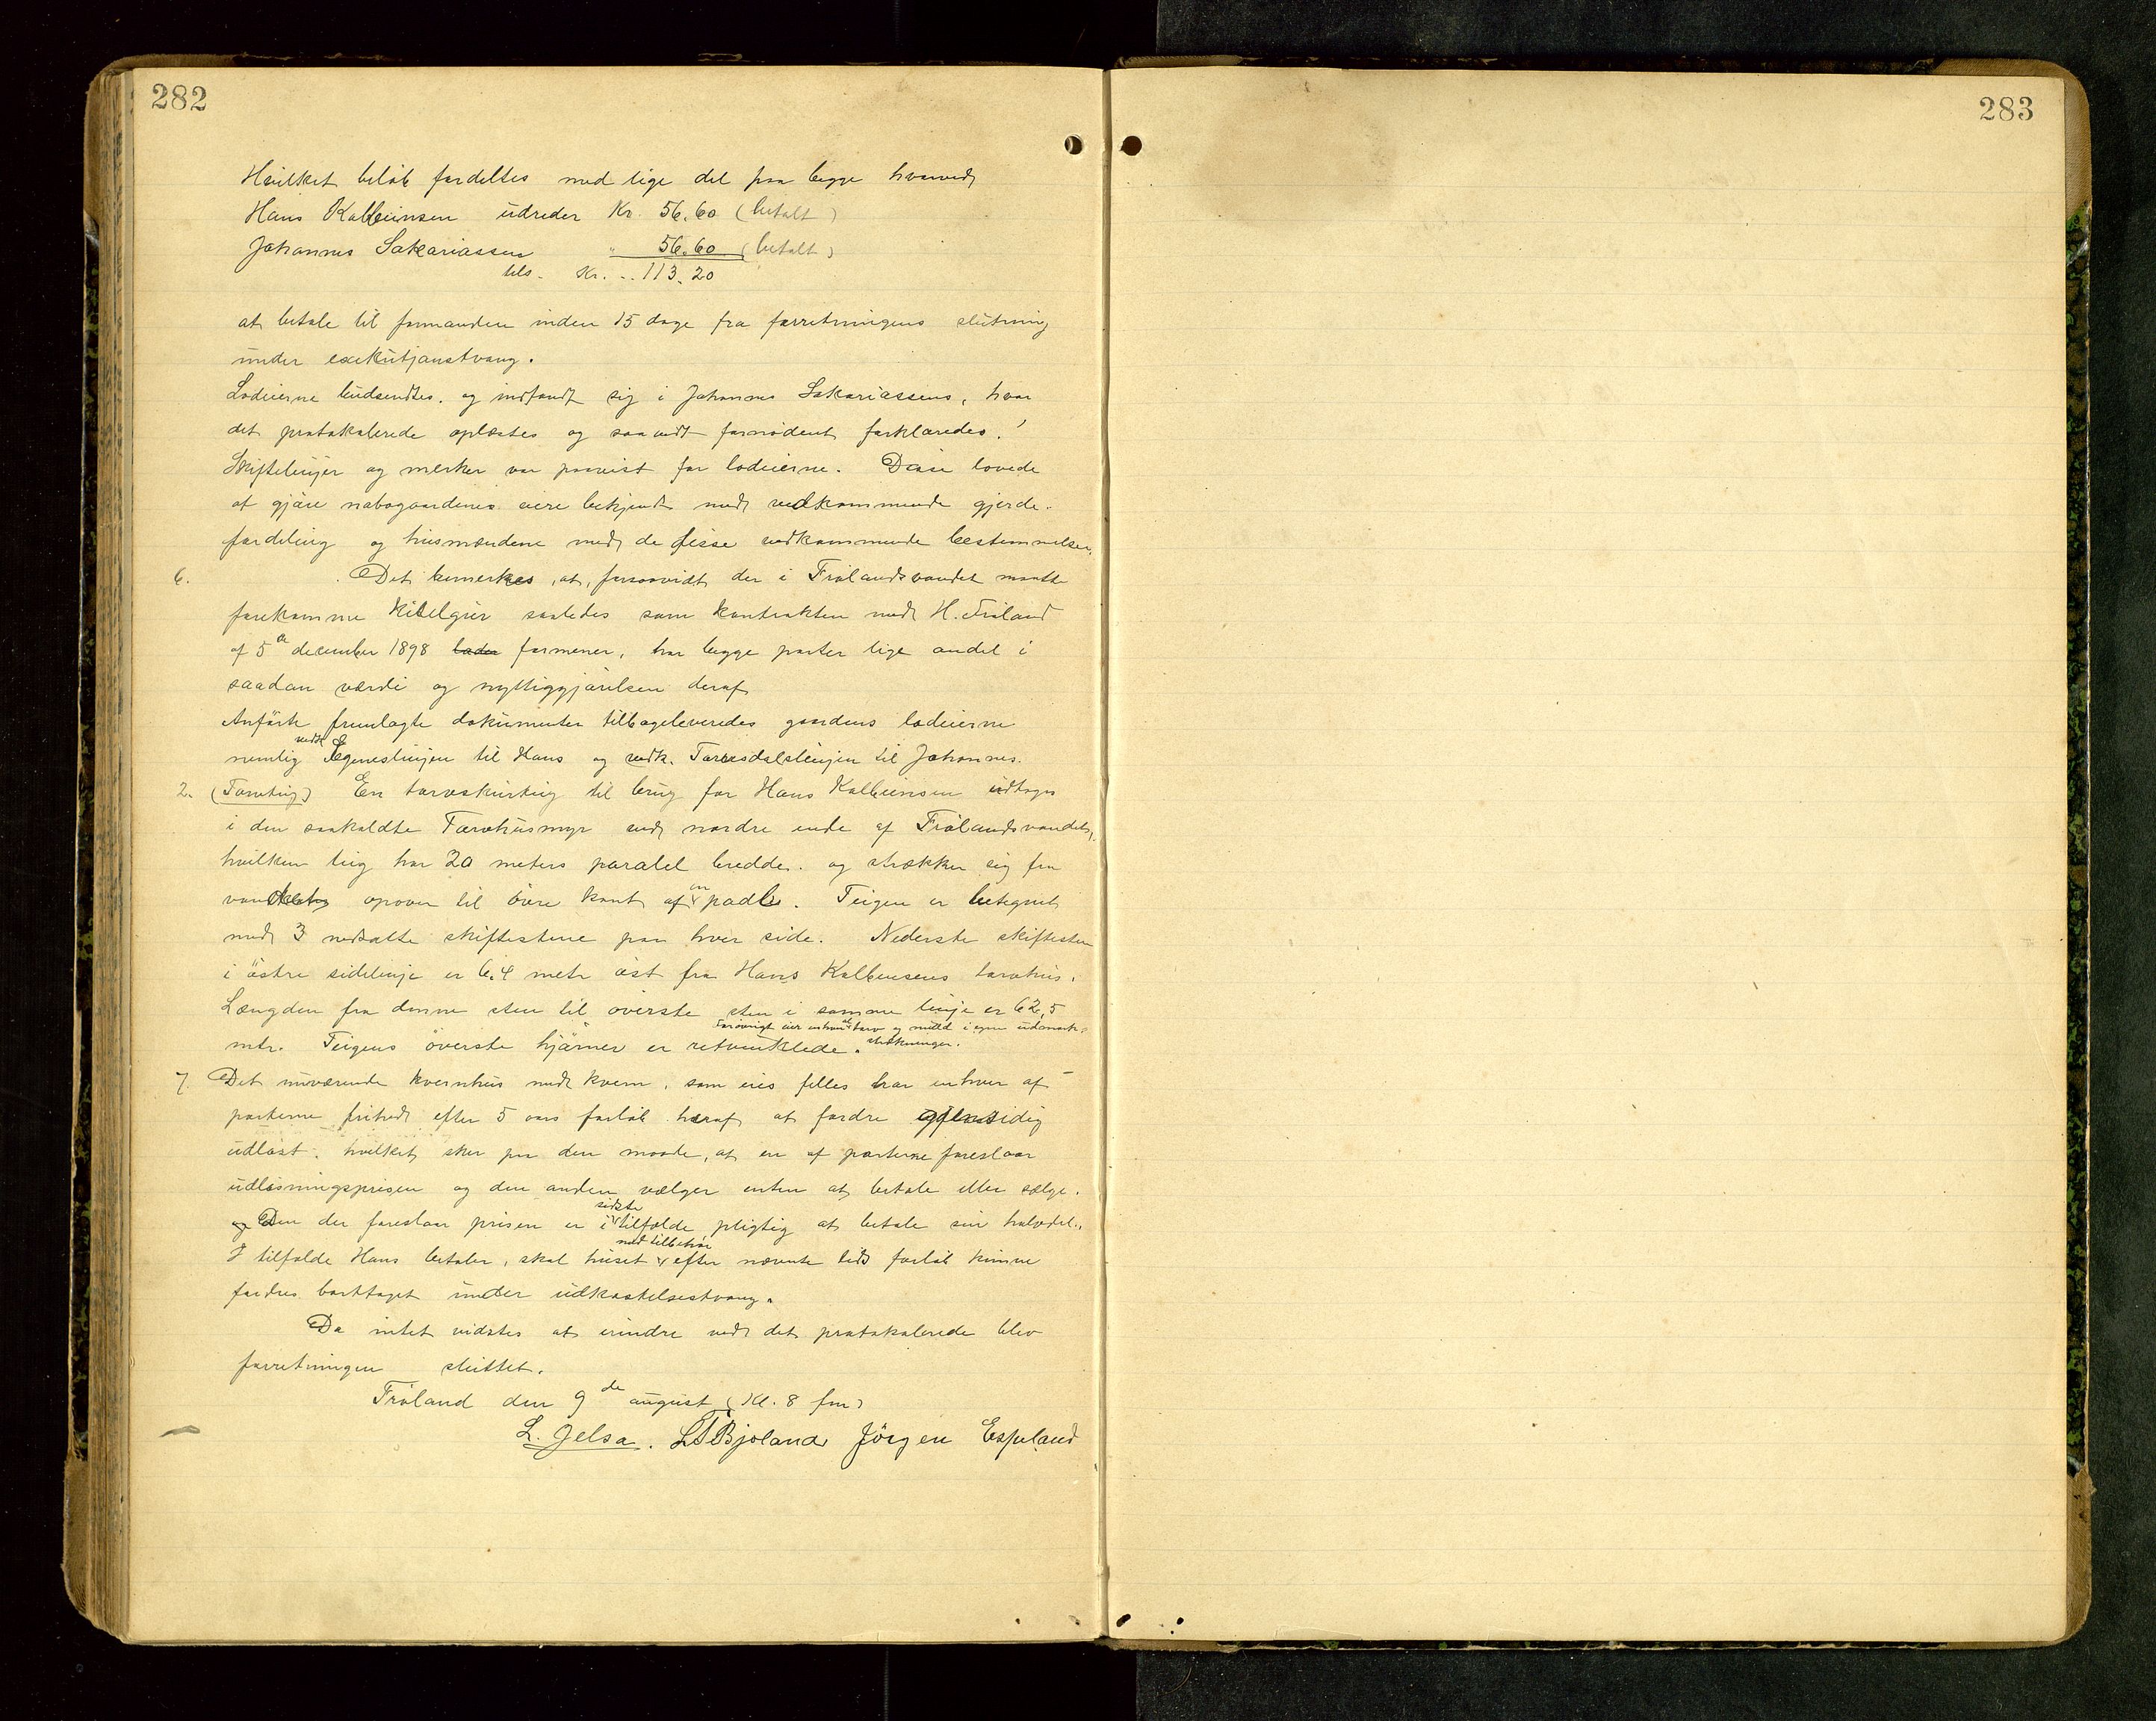 282
283
Hvilket beløb fordeltes med lige del paa begge hvorved
Hans Kolbeinsen udreder Kr. 56.60 (betalt)
Johannes Sakariassen " 56.60 (betalt)
tils. Kr. .. 113.20
at betale til formanden inden 15 dage fra forretningens slutning
under exekutjonstvang.
Lodeierne budsendtes. og indfandt sig i Johannes Sakariassens, hvor
det protokolerede oplæstes og saavidt fornødent forklaredes.
Skiftelinjer og merker var paavist for lodeierne. Disse lovede
at gjøre nabogaardenes eiere bekjendt med vedkommende gjerde-
fordeling og husmændene med de disse vedkommende bestemmelser.
6. Det bemerkes, at, forsaavidt der i Frølandsvandet maatte
forekomme kiselgur saaledes som kontrakten med H. Frøland
af 5te december 1898 formener, har begge parter lige andel i
saadan værdi og nyttiggjørelsen deraf
Anførte fremlagte dokumenter tilbageleveredes gaardens lodeierne
nemlig vedk. Egeneslinjen til Hans og vedk. Tarvesdalslinjen til Johannes.
2. (Torvteig) En torvskurteig til brug for Hans Kolbeinsen udtoges
i den saakaldte Torvhusmyr ved nordre ende af Frølandsvandet,
hvilken teig har 20 meters paralel bredde. og strækker sig fra
vandet opover til øvre kant af en padle. Teigen er betegnet
med 3 nedsatte skiftestene paa hver side. Nederste skiftesten
i østre sidelinje er 6.4 metr øst fra Hans Kolbensens torvhus.
Længden fra denne sten til øverste sten i samme linje er 62,5
mtr. Teigens øverste hjørner er retvinklede. Forøvrigt eier enhver al torv og muld i egne udmark-
strækninger.
7. Det nuværende kvernhus med kvern, som eies felles har enhver af
parterne frihed efter 5 aars forløb heraf at fordre gjensidig
udløst. hvilket sker paa den maade, at en af parterne foreslaar
udløsningsprisen og den anden vælger enten at betale eller sælge.
Den der foreslaar prisen er i sidste tilfælde pligtig at betale sin halvdel.
I tilfælde Hans betaler, skal huset med tilbehør efter nævnte tids forløb kunne
fordres borttaget under udkastelsestvang.
Da intet vidstes at erindre ved det protokolerede blev
forretningen sluttet.
Frøland den 9de august (Kl. 8 fm)
L. Jelsa. L T Bjoland Jörgen Espeland